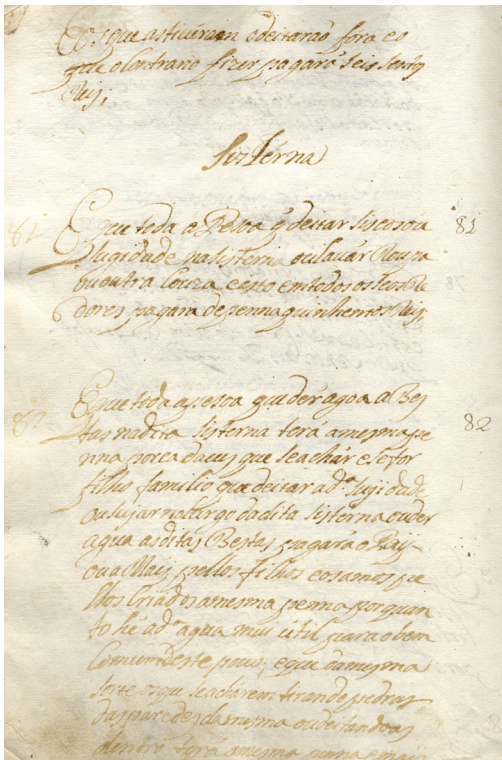 E os que as tiverem o deitarão fora e o
que o contrario fizer pagará seis sentos
Reis;
Sisterna
E que toda a Pesoa q deitar sisco ou
81
sugidade na sisterna ou lavár Roupa
ou outra couza e esto em todos os seus
dores pagara de penna quinhentos Reis
E que toda a pesoa que der agoa a Bes
82
tas na dita sisterna terá a mesma pe
nna por cada ves que se achár e se for
filho familio que deitar a dª sujidade
ou sujar no largo da dita sisterna ou der
agua as ditas Bestas pagará o Pay
ou a May pellos filhos e os amos pe
llos Criados a mesma penna porquan
to hé a dª agua mui util para o bem
Comum deste povo; e que da mesma
sorte os que se acharem tirando pedras
das paredes da mesma ou deitandoas
dentro terá a mesma penna e mais